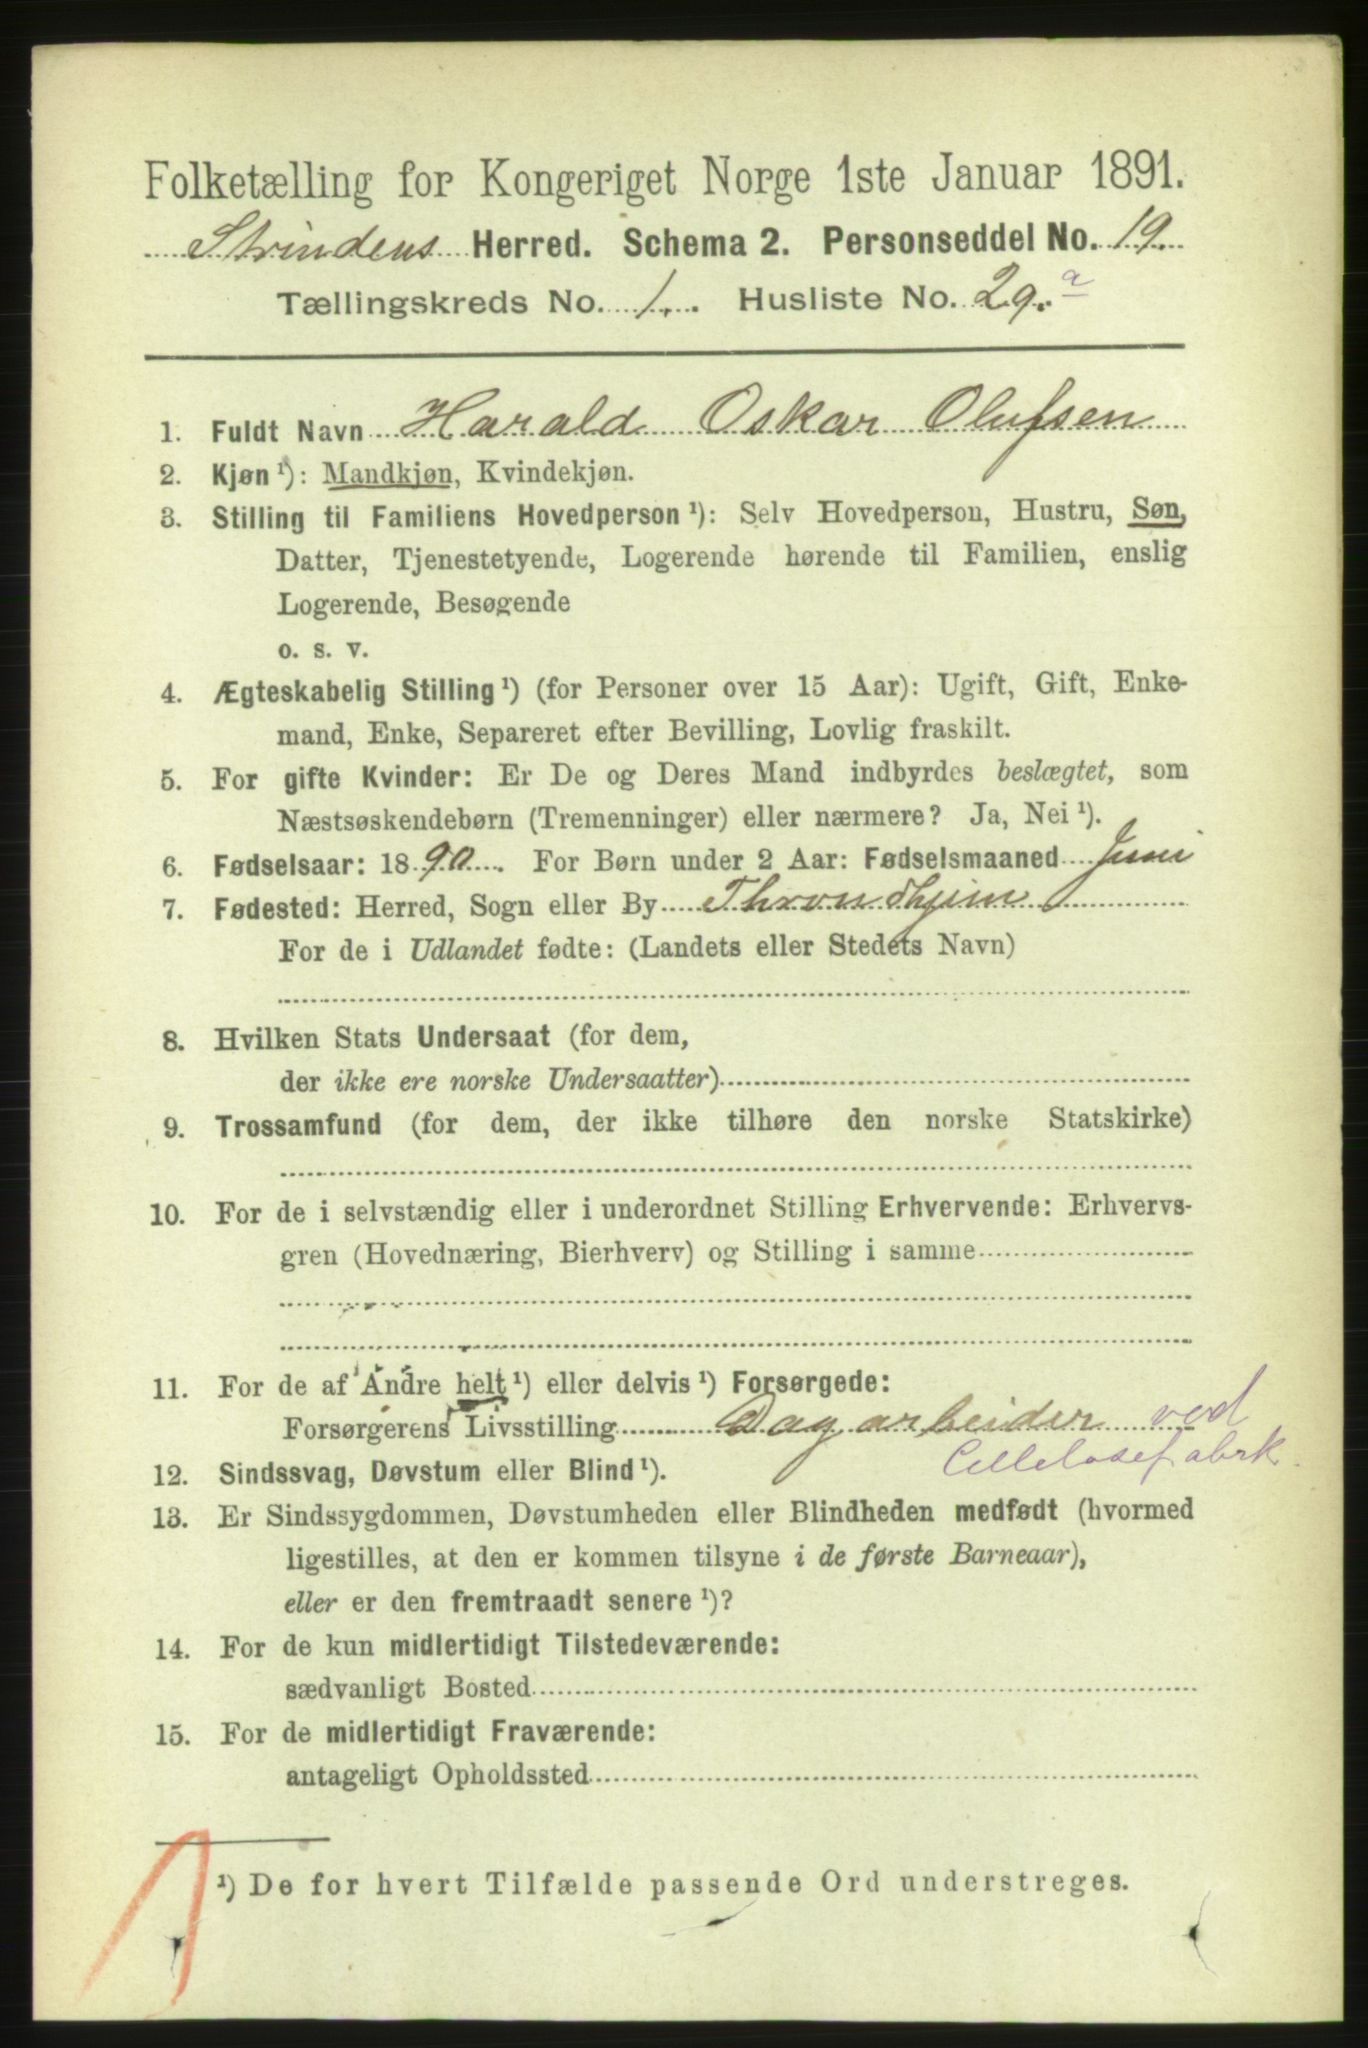 Folketælling for Kongeriget Norge 1ste Januar 1891.
Strindens Herred. Schema 2. Personseddel No. 19.
Tællingskreds No. 1. Husliste No. 29. a
1. Fuldt Navn Harald Oskar Olufsen
2. Kjøn ¹): Mandkjøn, Kvindekjøn.
3. Stilling til Familiens Hovedperson ¹): Selv Hovedperson, Hustru, Søn,
Datter, Tjenestetyende, Logerende hørende til Familien, enslig
Logerende, Besøgende
o. s. v.
4. Ægteskabelig Stilling ¹) (for Personer over 15 Aar): Ugift, Gift, Enke-
mand, Enke, Separeret efter Bevilling, Lovlig fraskilt.
5. For gifte Kvinder: Er De og Deres Mand indbyrdes beslægtet, som
Næstsøskendebørn (Tremenninger) eller nærmere? Ja, Nei ¹).
6. Fødselsaar: 1890. For Børn under 2 Aar: Fødselsmaaned Juni
7. Fødested: Herred, Sogn eller By Throndhjem
For de i Udlandet fødte: (Landets eller Stedets Navn)
8. Hvilken Stats Undersaat (for dem,
der ikke ere norske Undersaatter)
9. Trossamfund (for dem, der ikke tilhøre den norske Statskirke)
10. For de i selvstændig eller i underordnet Stilling Erhvervende: Erhvervs-
gren (Hovednæring, Bierhverv) og Stilling i samme
11. For de af Andre helt ¹) eller delvis ¹) Forsørgede:
Forsørgerens Livsstilling Dagarbeider ved
Cellelosefabrk.
12. Sindssvag, Døvstum eller Blind ¹).
13. Er Sindssygdommen, Døvstumheden eller Blindheden medfødt (hvormed
ligestilles, at den er kommen tilsyne i de første Barneaar),
eller er den fremtraadt senere ¹)?
14. For de kun midlertidigt Tilstedeværende:
sædvanligt Bosted
15. For de midlertidigt Fraværende:
antageligt Opholdssted
¹) De for hvert Tilfælde passende Ord understreges.